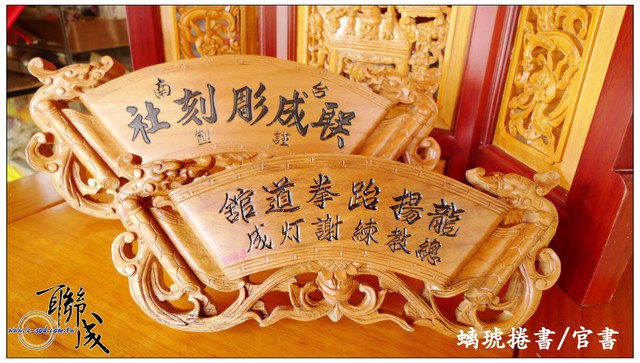 台南
聯成彫刻社
謹製
龍揚跆拳道館
總教練謝灯成
聯成
螭琥捲書/官書